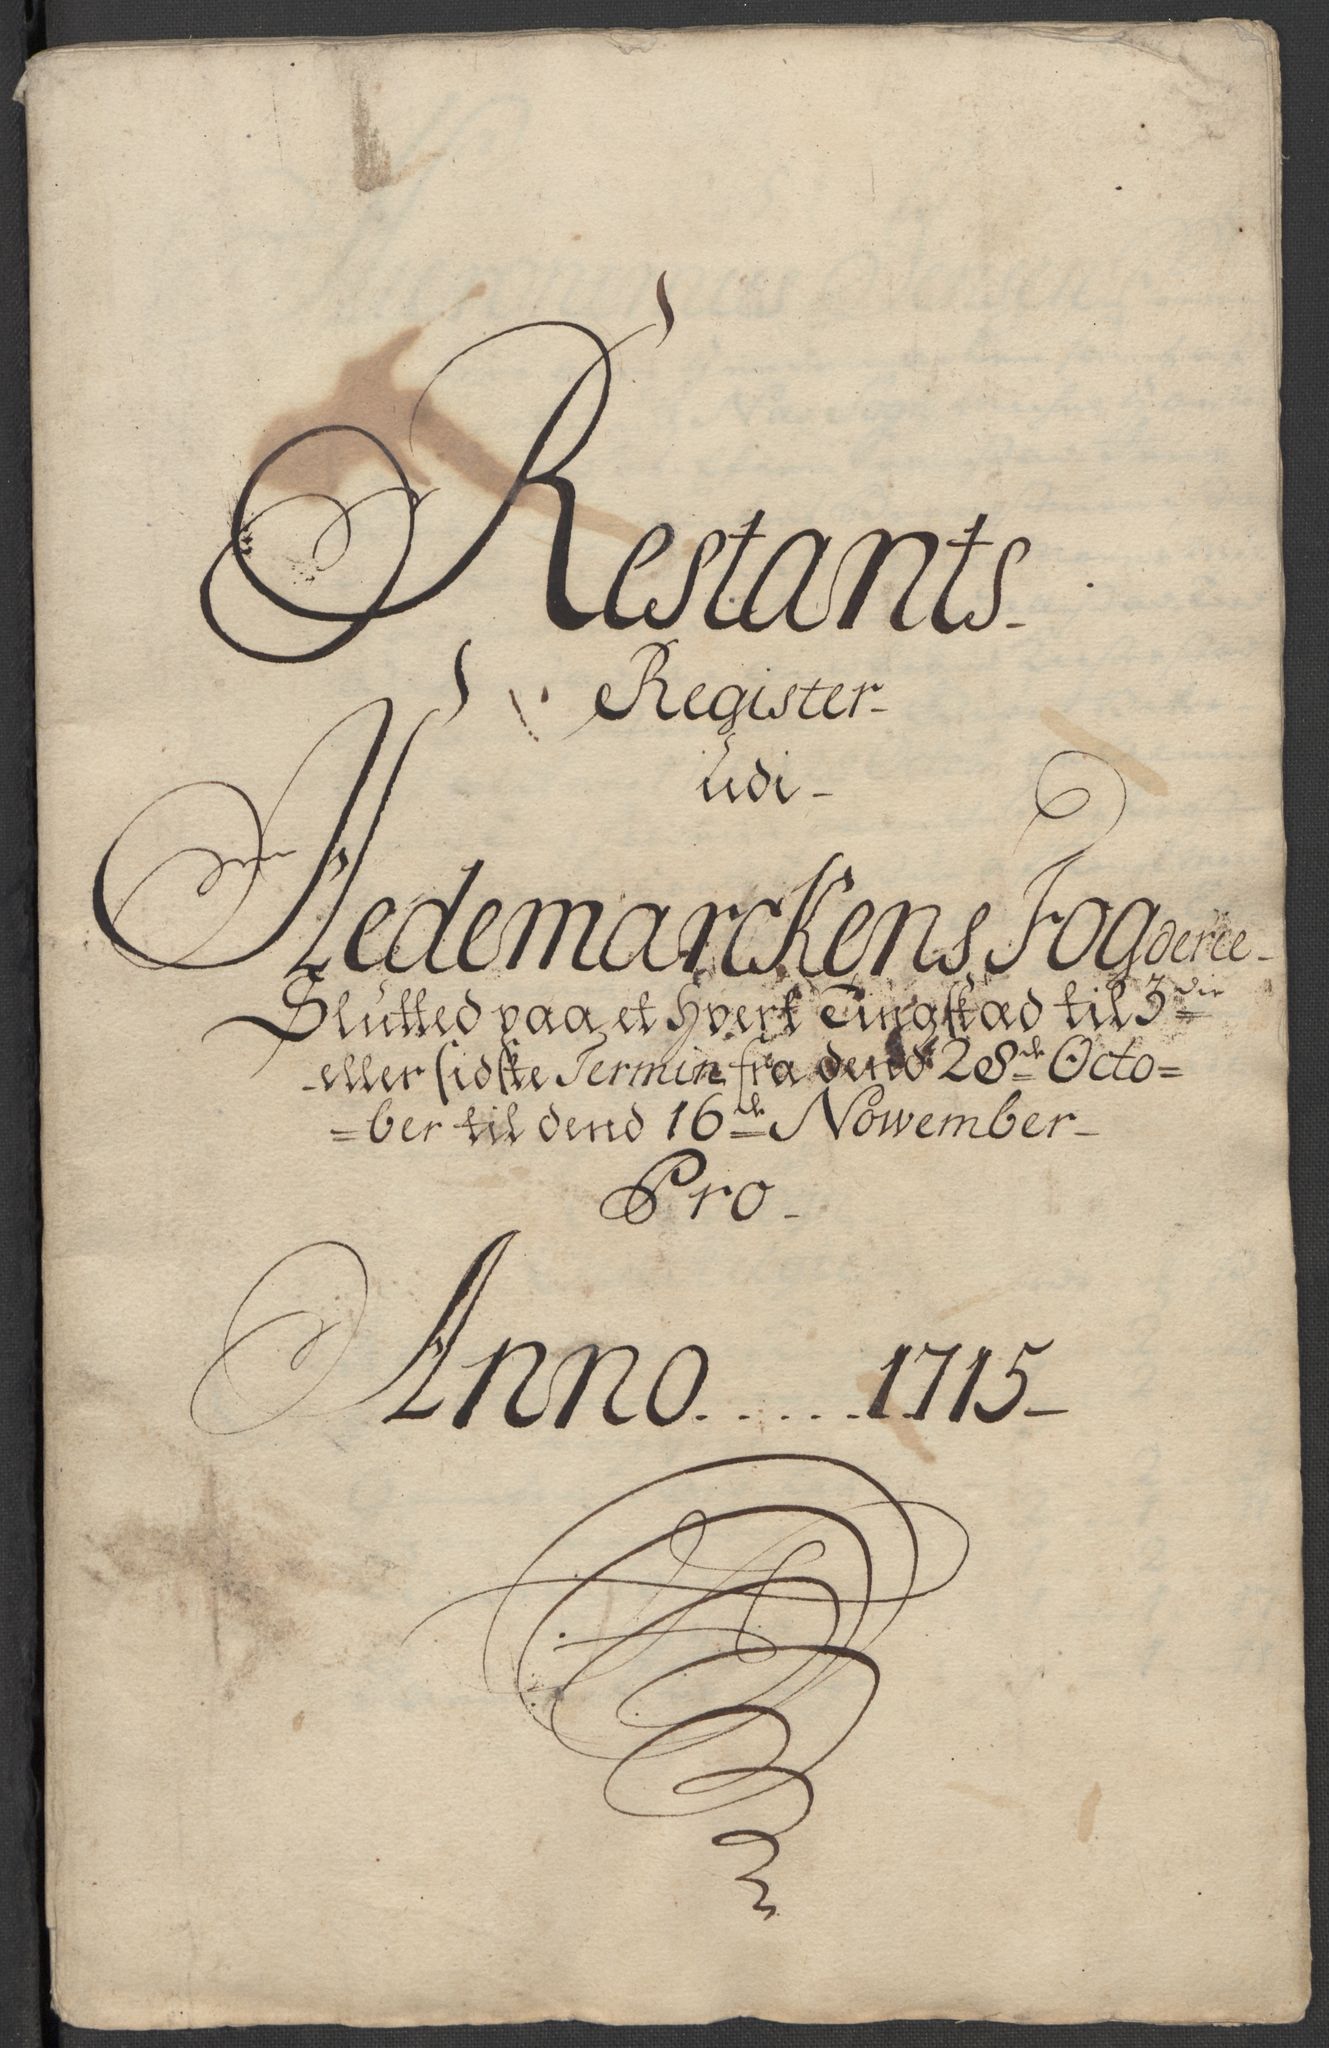 Restants
Register
udi
Hedemarckens Fogderie
Slutted paa et hvert Tingstæd til 3die
eller sidste Termin fra dend 28de Octo=
=ber til dend 16de Nowember
Pro
Anno ...... 1715